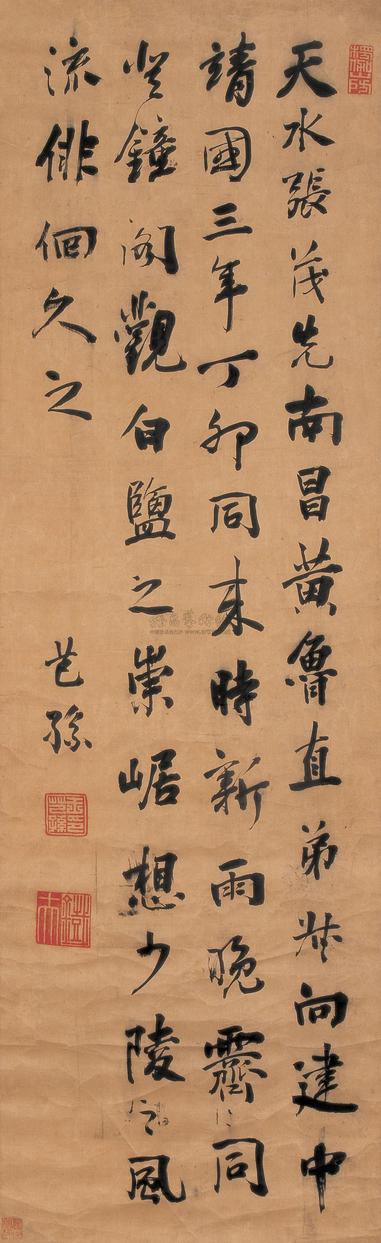 天水張茂先南昌黃魯直弟叔向建中
靖國三年丁卯同來時新雨晚霽同
登鐘閣觀白鹽之崇崌想少陵之風
流俳佪久之
芑孫